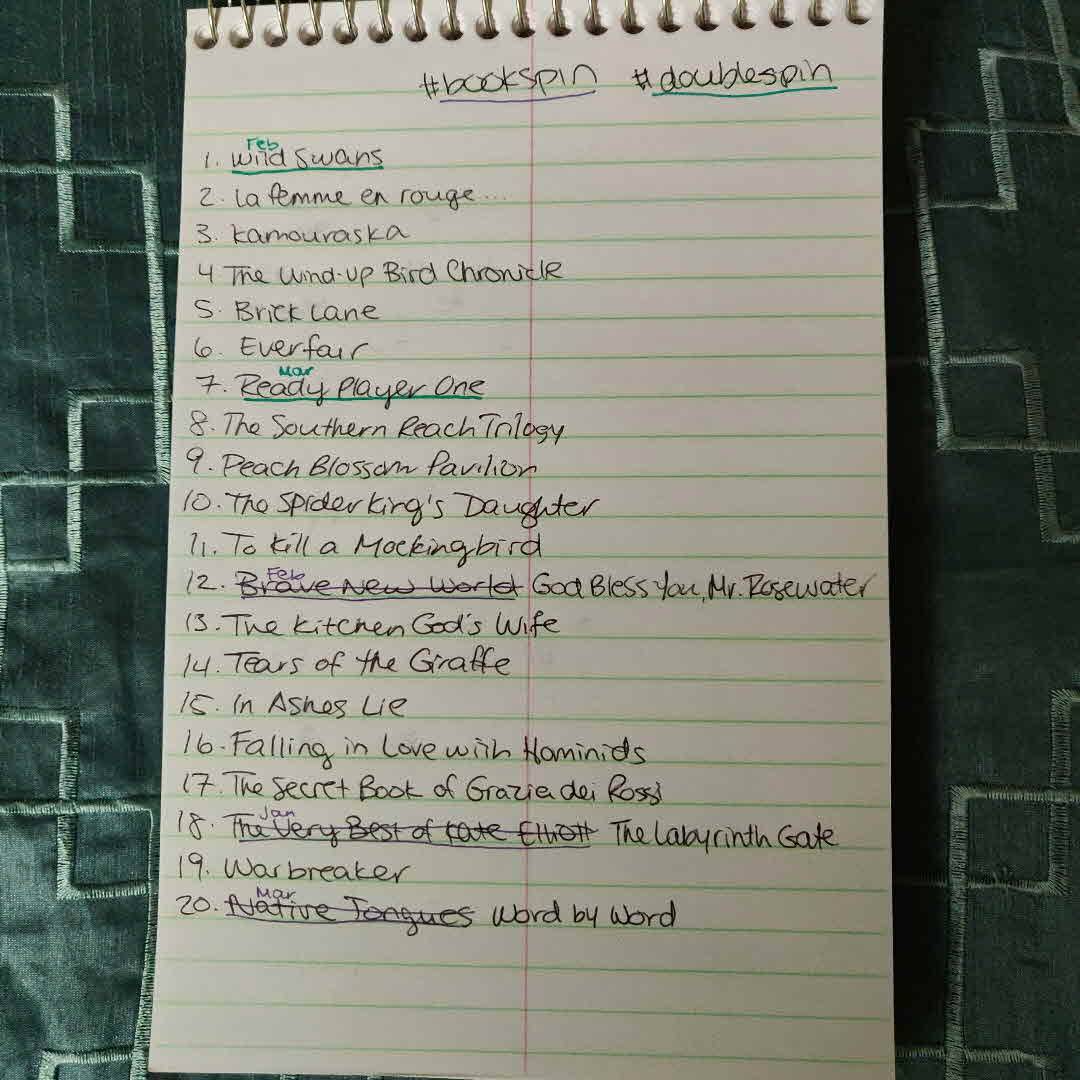 #bookspin #doublespin
Feb
1. Wild Swans
2. La femme en rouge...
3. Kamouraska
4 The Wind-up Bird Chronicle
5. Brick Lane
6. Everfair
Mar
7. Ready Player One
8. The Southern Reach Trilogy
9. Peach Blossom Pavilion
10. The Spider King's Daughter
11. To Kill a Mockingbird
Feb
12. Brave New World God Bless You, Mr. Rosewater
13. The Kitchen God's Wife
14. Tears of the Giraffe
15. In Ashes Lie
16. Falling in Love with Hominids
17. The Secret Book of Grazia dei Rossi
Jan
18. The Very Best of Kate Elliott The Labyrinth Gate
19. Warbreaker
Mar
20. Native Tongues Word by Word